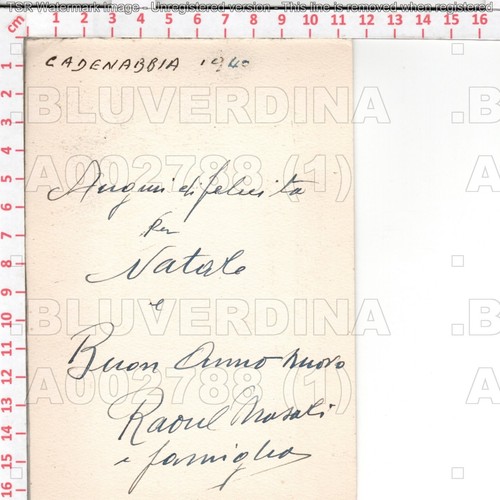 TSR Watermark Image - Unregistered version - This line is removed when registered
cm 1 2 3 4 5 6 7 8 9 10 11 12 13 14 15 16
CADENABBIA 1940
.BLUVERDINA .BLUVERDINA
A002788 (1) A002788 (1)
Auguri di felicità
per
Natale
e
.BLUVERDINA .BLUVERDINA
Buon Anno nuovo
A002788 (1) A002788 (1)
Raoul
e famiglia
1 2 3 4 5 6 7 8 9 10 11 12 13 14 15 16